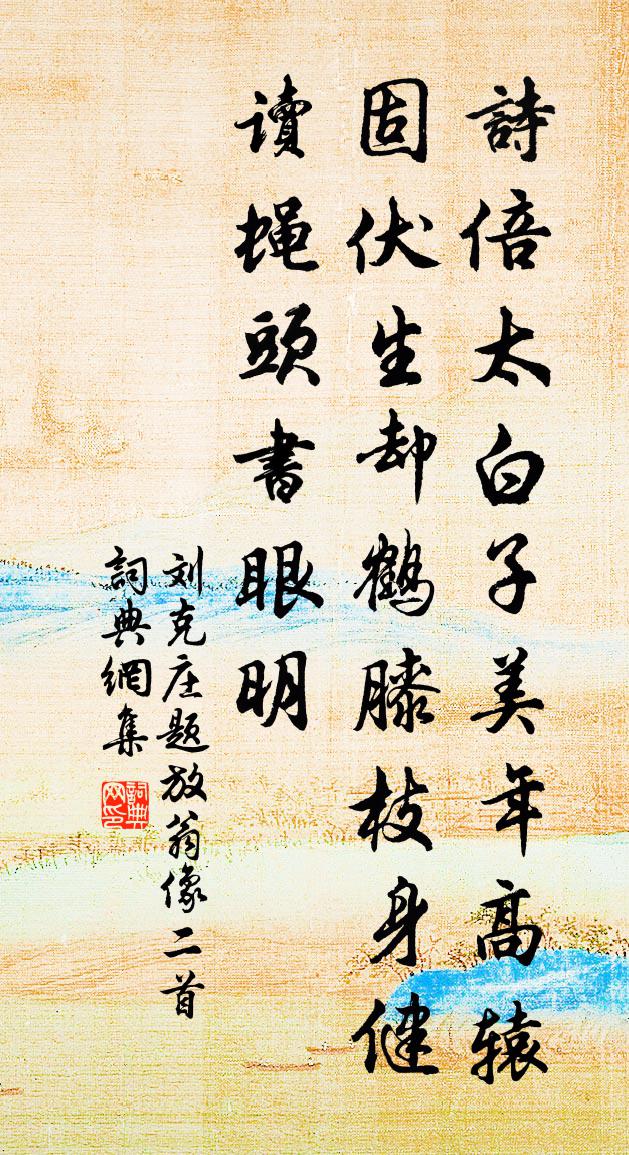 詩倍太白子美年高辕
固伏生却鹤膝枝身健
读蝇頭書眼明
刘克庄题放翁像二首
詞典網集
詞典
网印